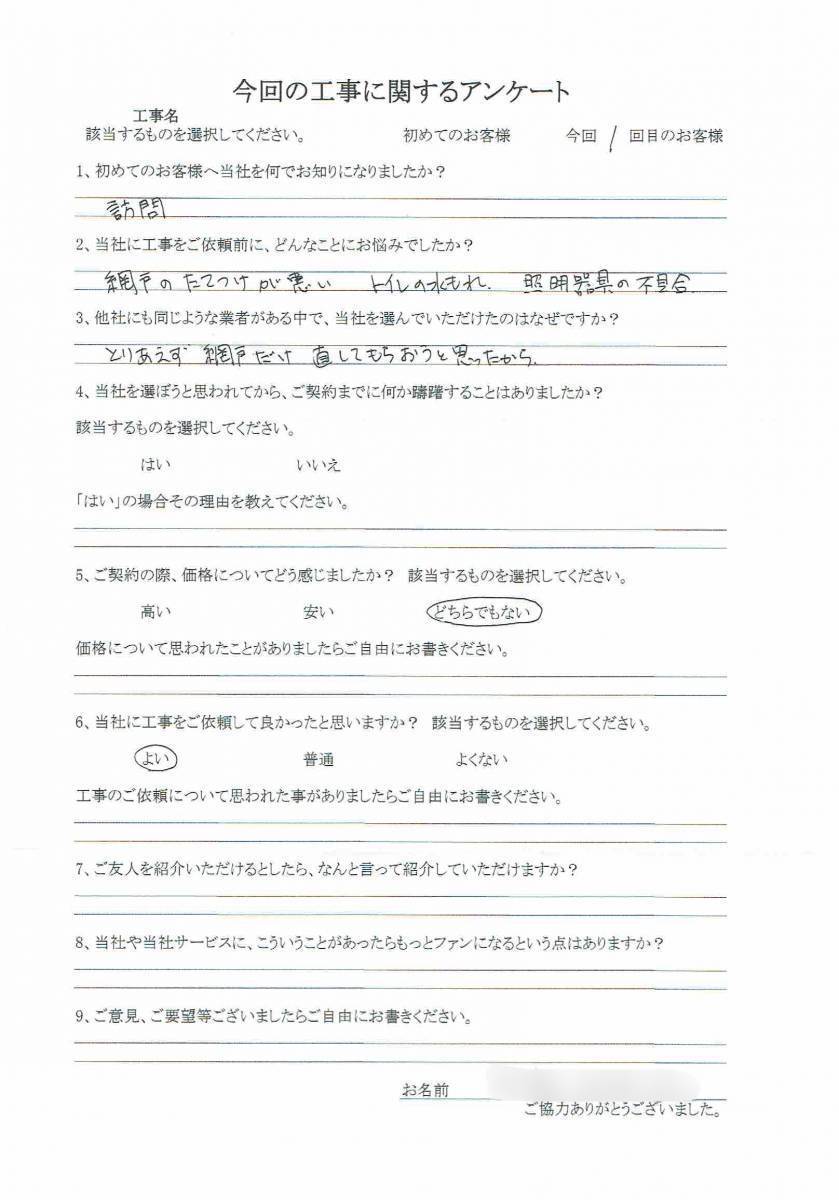 今回の工事に関するアンケート
工事名
該当するものを選択してください。 初めてのお客様 今回 / 回目のお客様
1、初めてのお客様へ当社を何でお知りになりましたか？
訪問
2、当社に工事をご依頼前に、どんなことにお悩みでしたか？
網戸のたてつけが悪い トイレの水もれ. 照明器具の不具合.
3、他社にも同じような業者がある中で、当社を選んでいただけたのはなぜですか？
とりあえず 網戸だけ 直してもらおうと思ったから.
4、当社を選ぼうと思われてから、ご契約までに何か躊躇することはありましたか？
該当するものを選択してください。
はい いいえ
「はい」の場合その理由を教えてください。
5、ご契約の際、価格についてどう感じましたか？ 該当するものを選択してください。
高い 安い どちらでもない
価格について思われたことがありましたらご自由にお書きください。
6、当社に工事をご依頼して良かったと思いますか？ 該当するものを選択してください。
よい 普通 よくない
工事のご依頼について思われた事がありましたらご自由にお書きください。
7、ご友人を紹介いただけるとしたら、なんと言って紹介していただけますか？
8、当社や当社サービスに、こういうことがあったらもっとファンになるという点はありますか？
9、ご意見、ご要望等ございましたらご自由にお書きください。
お名前
ご協力ありがとうございました。